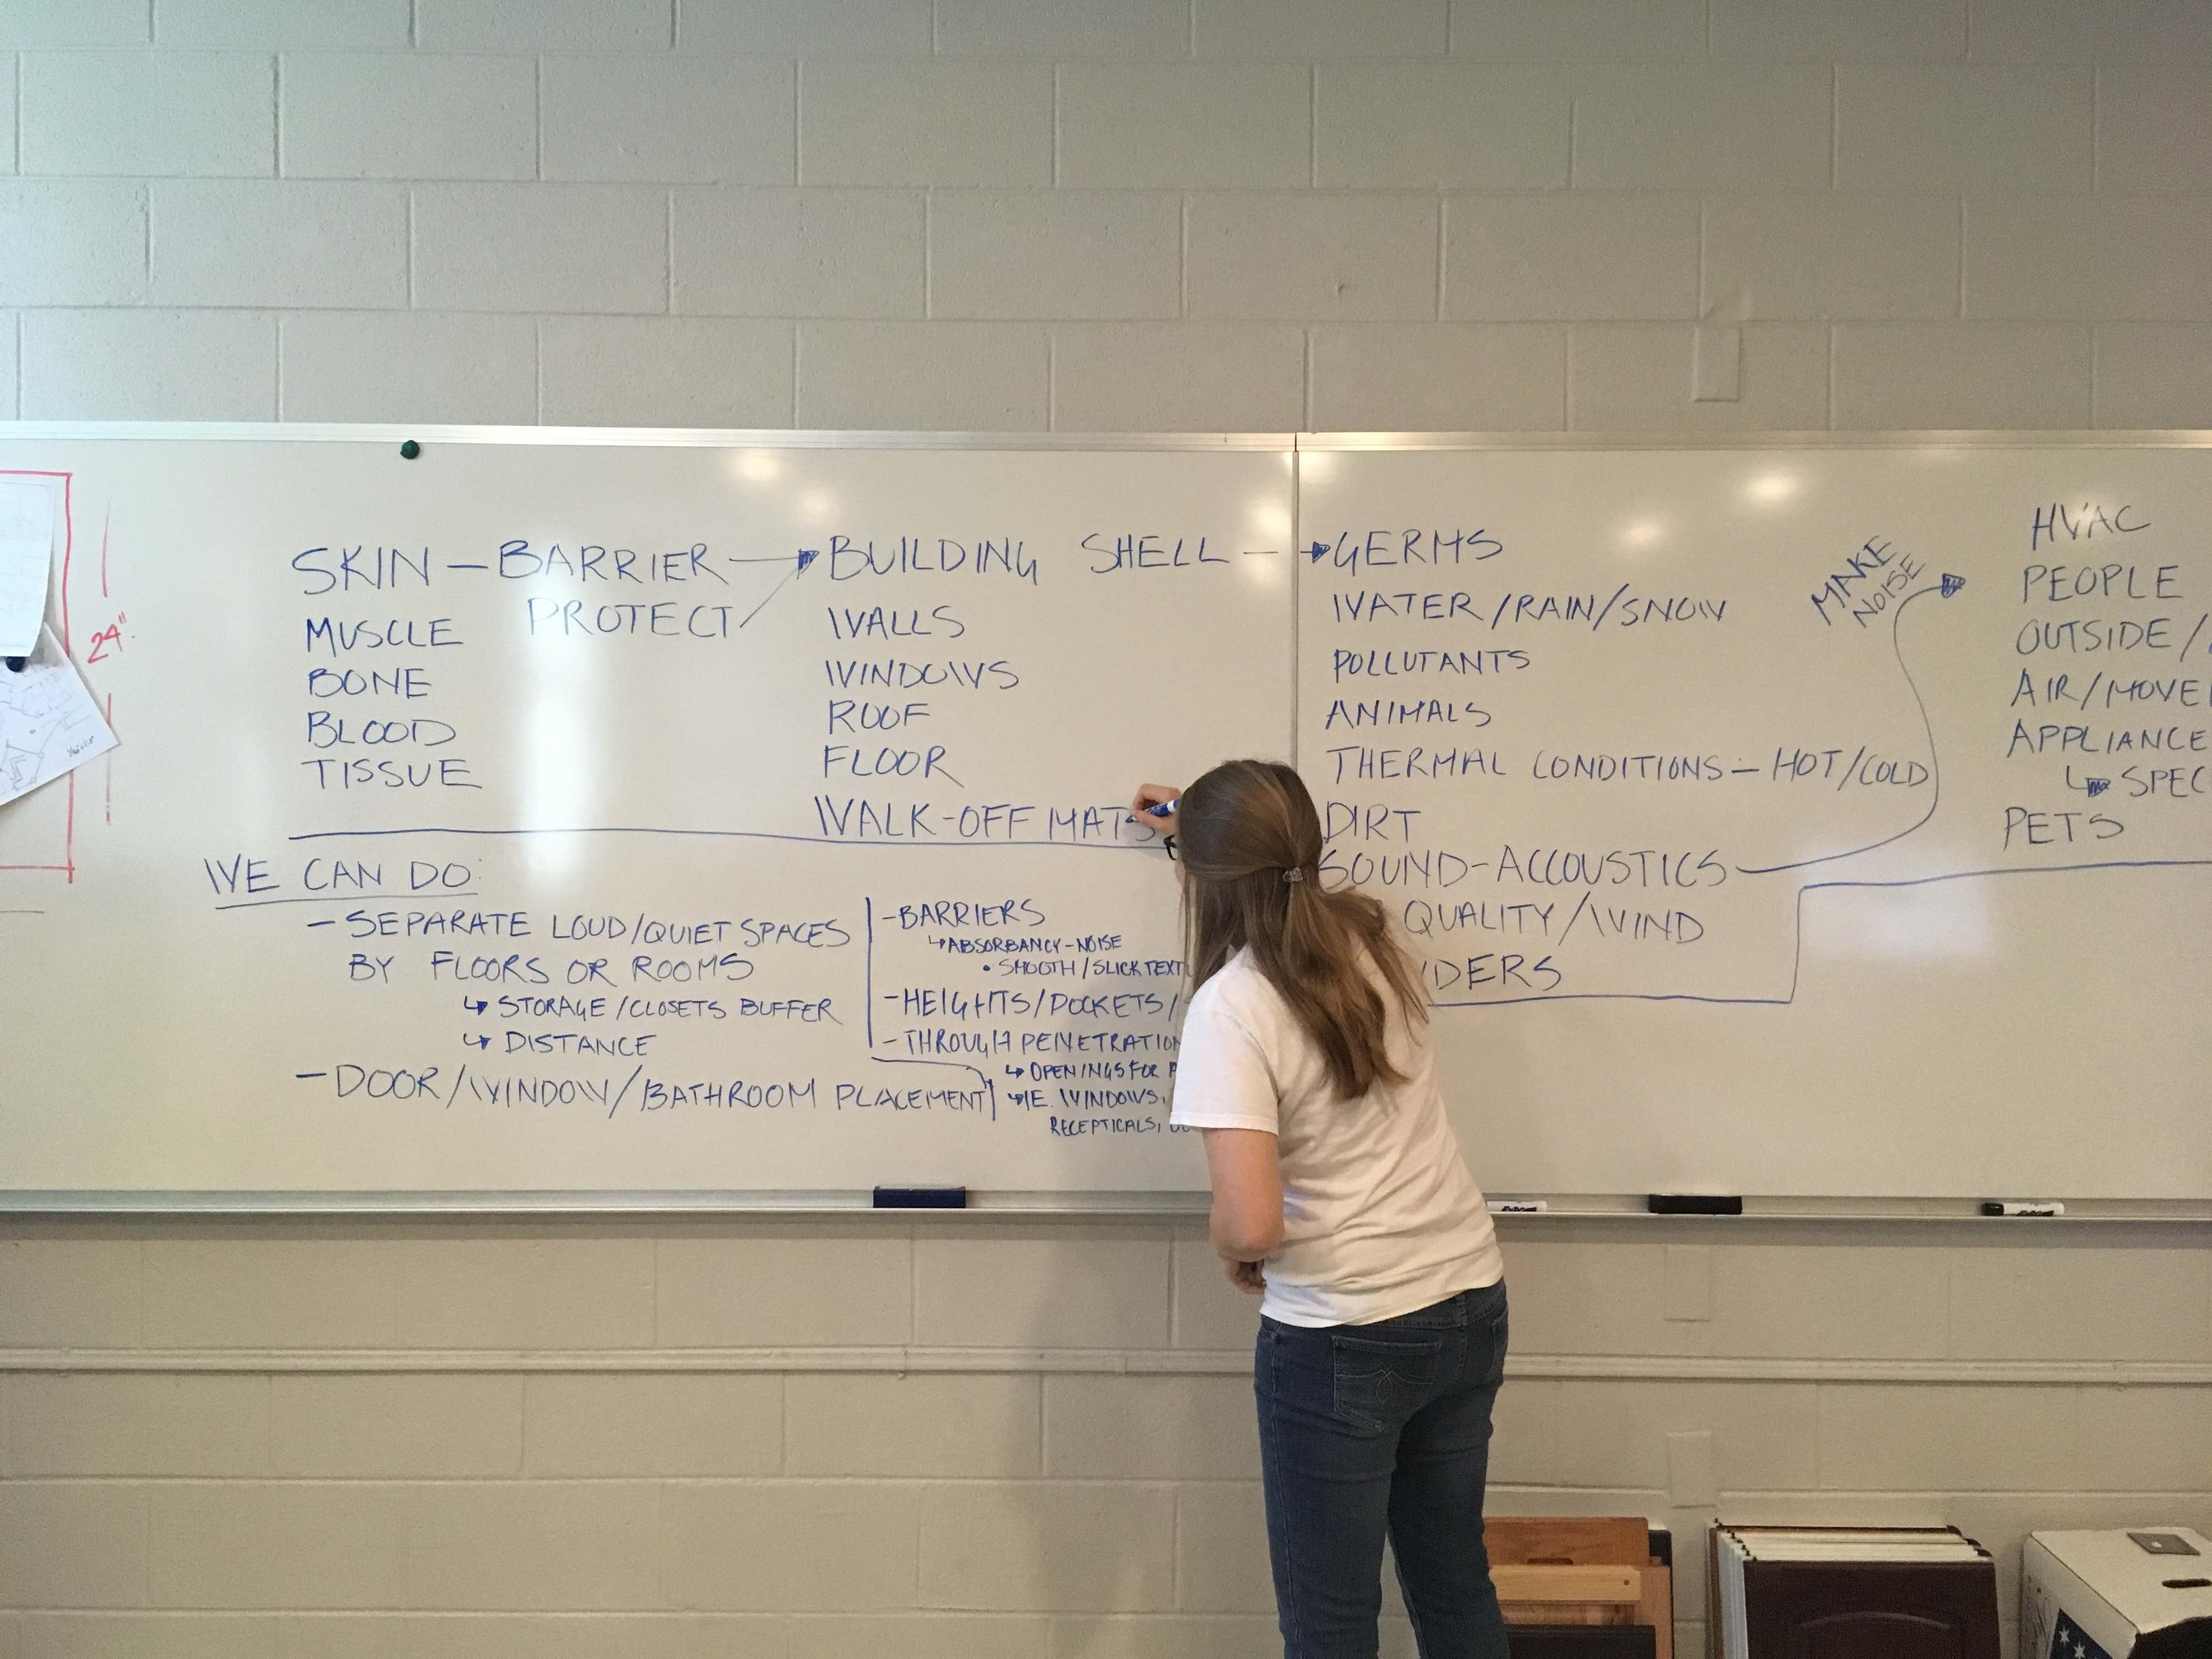 SKIN — BARRIER → BUILDING SHELL → GERMS
PROTECT
MUSCLE
BONE
BLOOD
TISSUE
WALLS
WINDOWS
ROOF
FLOOR
WALK-OFF MATS
WATER/RAIN/SNOW
POLLUTANTS
ANIMALS
THERMAL CONDITIONS — HOT/COLD
DIRT
SOUND-ACCOUSTICS
QUALITY/WIND
MAKE
NOISE
HVAC
PEOPLE
OUTSIDE/
AIR/
PETS
24"
WE CAN DO:
— SEPARATE LOUD/QUIET SPACES
BY FLOORS OR ROOMS
↳ STORAGE/CLOSETS BUFFER
↳ DISTANCE
— DOOR/WINDOW/BATHROOM PLACEMENT
- BARRIERS
↳ ABSORBANCY-NOISE
• SMOOTH/SLICK
- HEIGHTS/POCKETS/
- THROUGH
↳ OPENINGS FOR
↳ IE. WINDOWS,
RECEPTICALS,